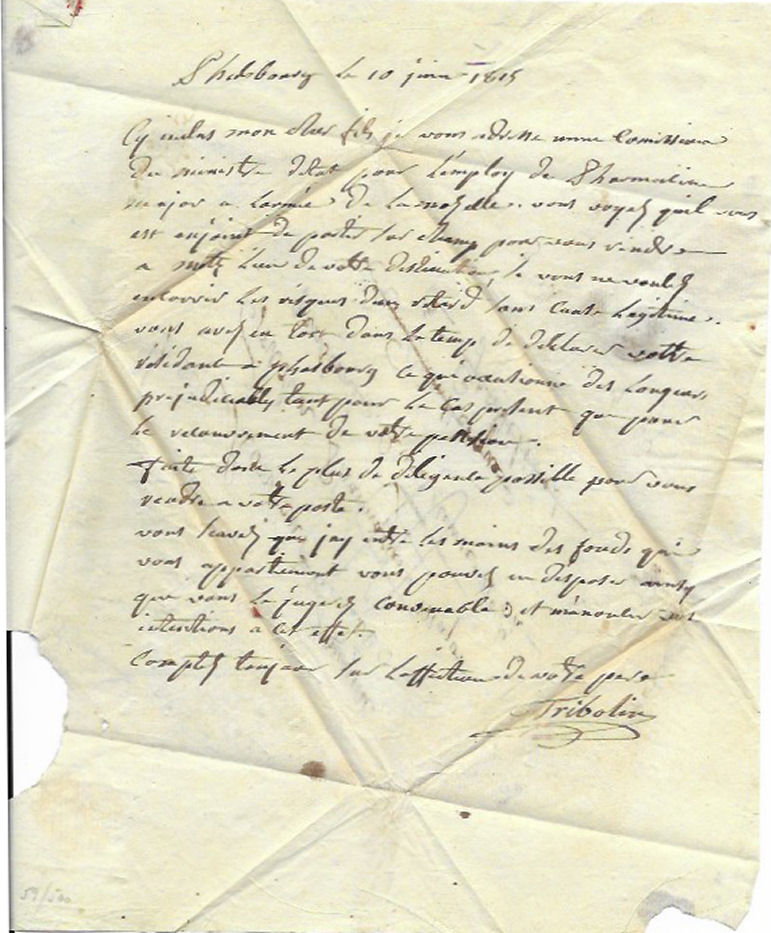 Phalsbourg le 10 juin 1815
Cy inclus mon cher fils je vous adresse unne Comission
du ministre detat pour l'employ de Pharmatien
major a larmée de la mozelle. vous voyez quil vous
est enjoint de partir sur champ pour vous rendre
a metz lieu de votre destination, si vous ne voulez
encourir les risques dun retard sans cause légitime.
vous avez eu tort dans le temp de déclarer votre
résidence a phalsbourg ce qui occasionne des longeurs
prejudiciables tant pour le cas présent que pour
le recouvrement de votre pension.
faite donc le plus de diligence possible pour vous
rendre a votre poste.
vous savez que jay entre les mains des fonds qui
vous appartienent vous pouvez en disposer ainsy
que vous le jugerez convenable, et m'anoncer vos
intentions a cet effet.
Comptez toujour sur l'affection de votre pere
Tribolin
59/500